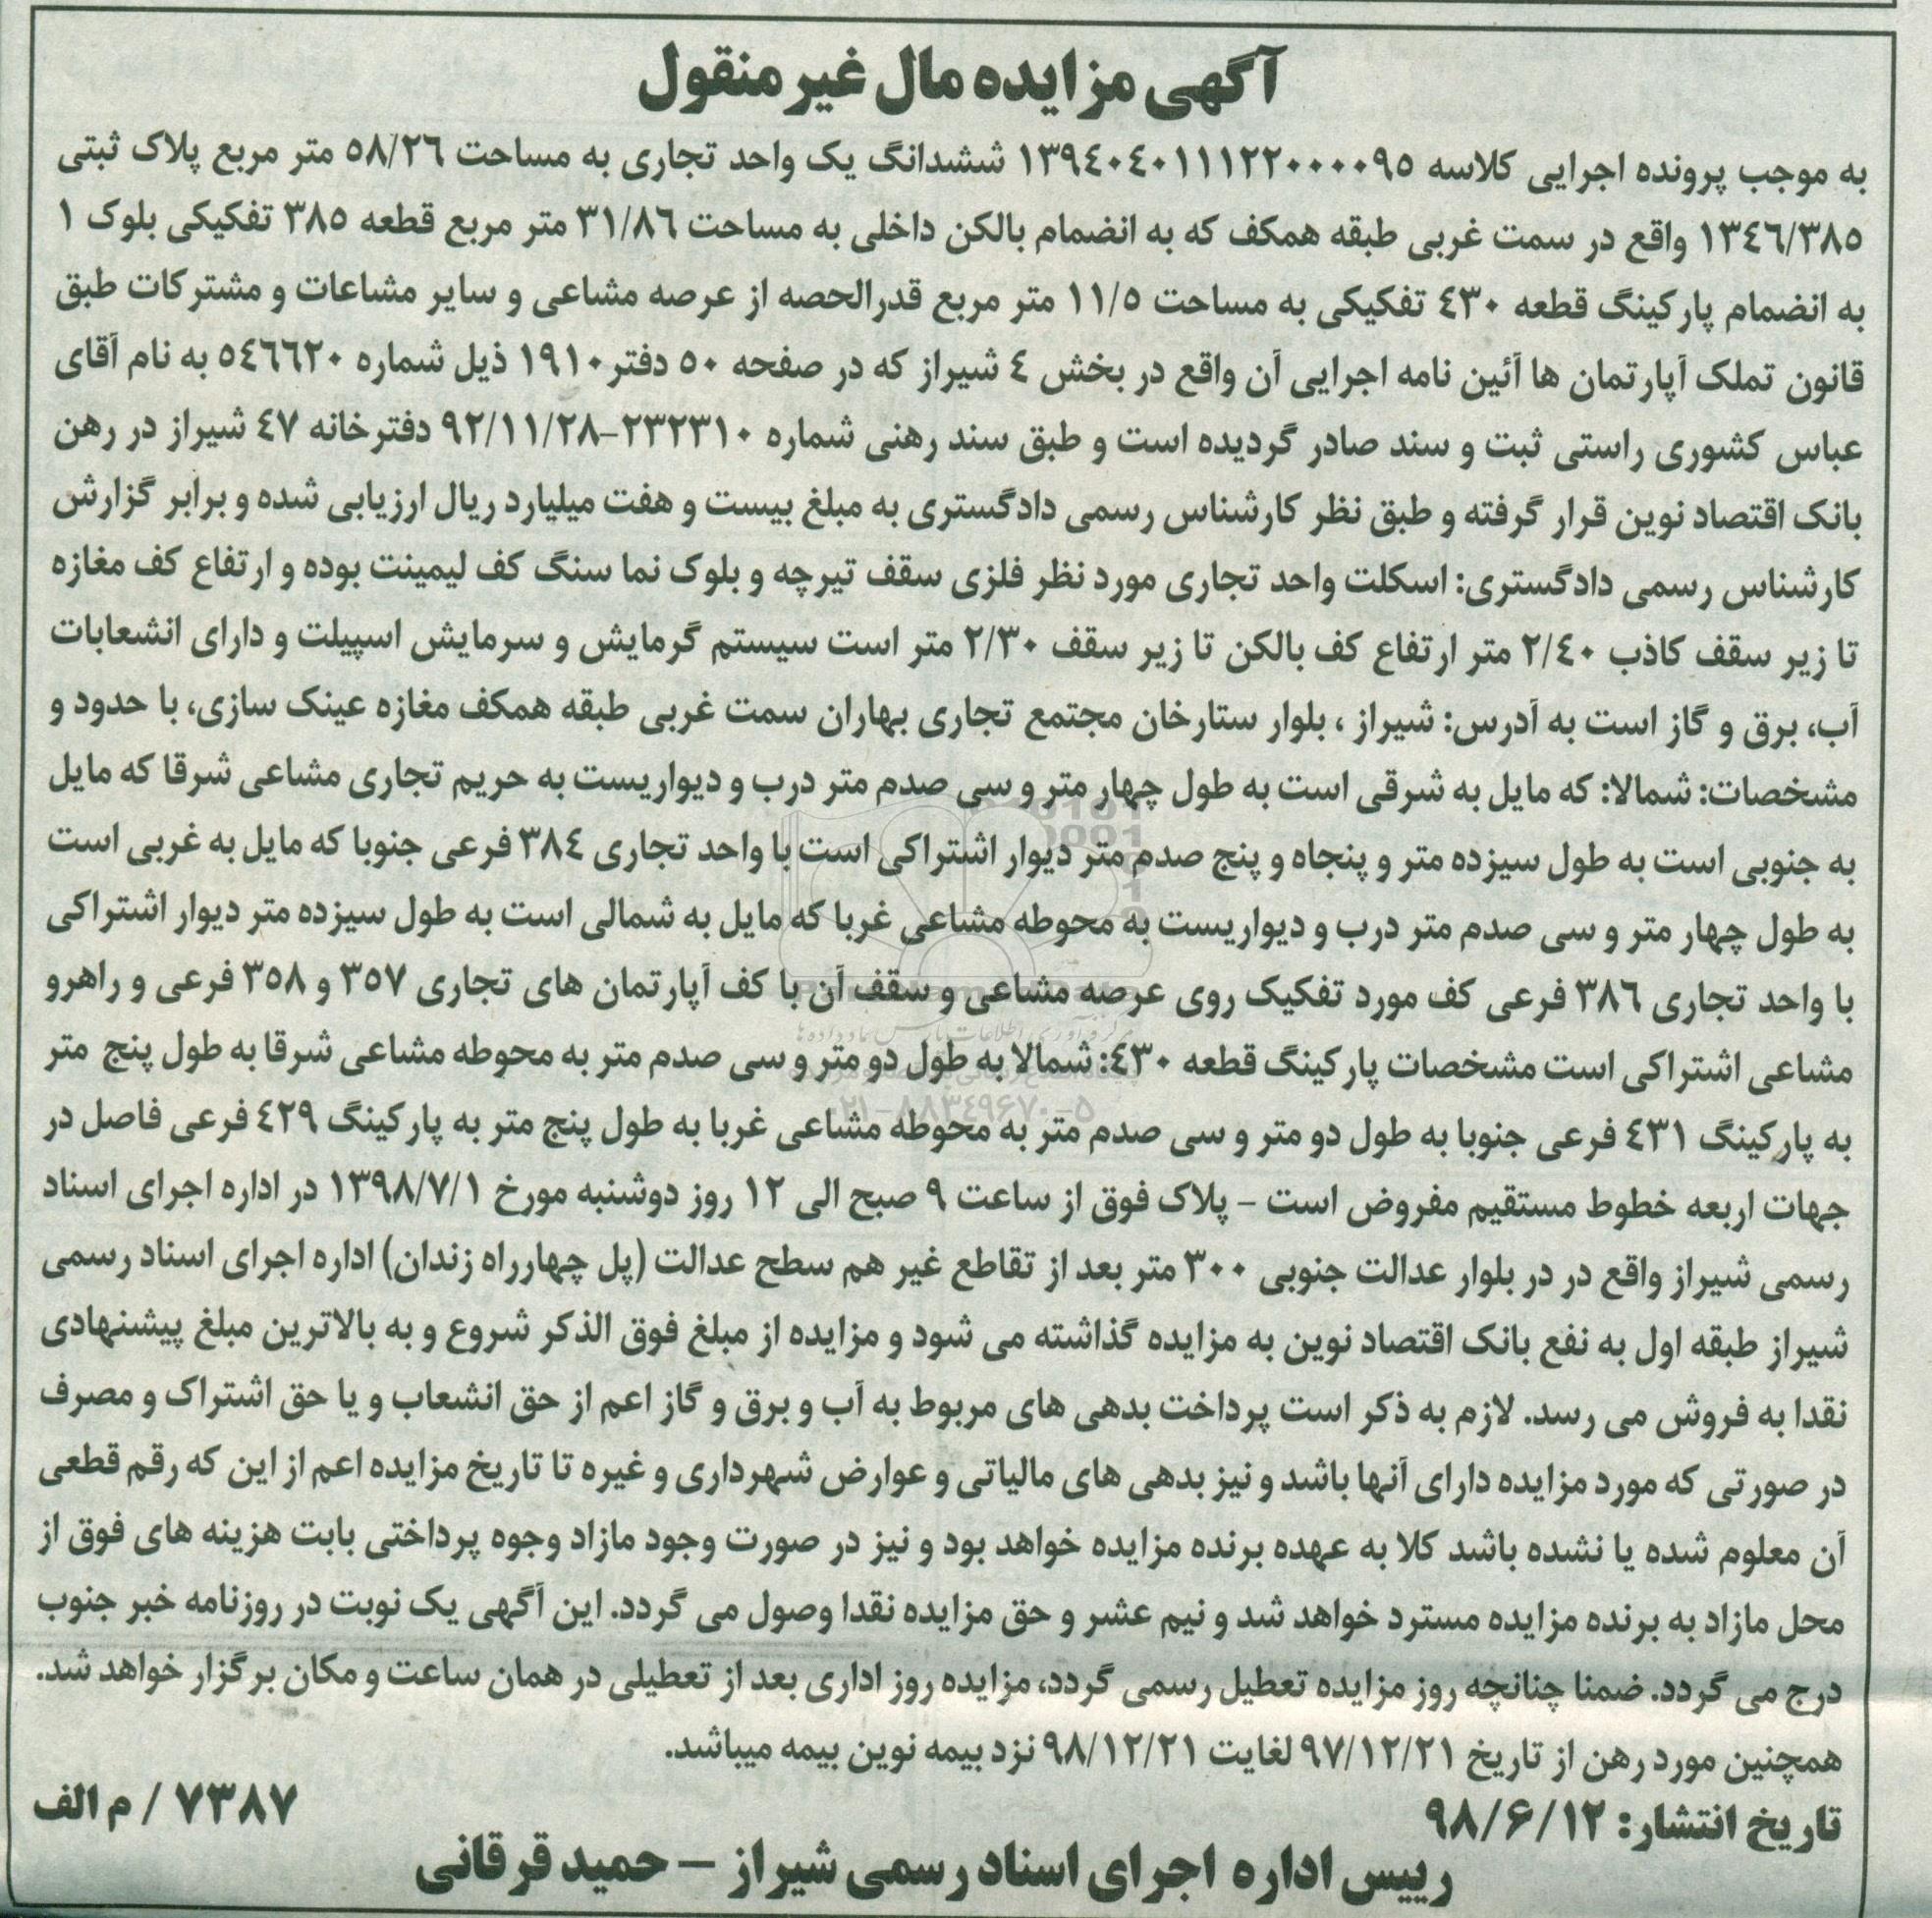 آگهی مزایده مال غیر منقول
به موجب پرونده اجرایی کلاسه ۱۳۹٤۰٤۰۱۱۱۲۲۰۰۰۰۹۵ ششدانگ یک واحد تجاری به مساحت ۵۸/۲٦ متر مربع پلاک ثبتی
۱۳٤٦/۳۸۵ واقع در سمت غربی طبقه همکف که به انضمام بالکن داخلی به مساحت ۳۱/۸٦ متر مربع قطعه ۳۸۵ تفکیکی بلوک ۱
به انضمام پارکینگ قطعه ٤۳۰ تفکیکی به مساحت ۱۱/۵ متر مربع قدرالحصه از عرصه مشاعی و سایر مشاعات و مشترکات طبق
قانون تملک آپارتمان ها آئین نامه اجرایی آن واقع در بخش ٤ شیراز که در صفحه ۵۰ دفتر۱۹۱۰ ذیل شماره ۵٤٦٦۲۰ به نام آقای
عباس کشوری راستی ثبت و سند صادر گردیده است و طبق سند رهنی شماره ۲۳۲۳۱۰-۹۲/۱۱/۲۸ دفترخانه ٤۷ شیراز در رهن
بانک اقتصاد نوین قرار گرفته و طبق نظر کارشناس رسمی دادگستری به مبلغ بیست و هفت میلیارد ریال ارزیابی شده و برابر گزارش
کارشناس رسمی دادگستری: اسکلت واحد تجاری مورد نظر فلزی سقف تیرچه و بلوک نما سنگ کف لیمینت بوده و ارتفاع کف مغازه
تا زیر سقف کاذب ۲/٤۰ متر ارتفاع کف بالکن تا زیر سقف ۲/۳۰ متر است سیستم گرمایش و سرمایش اسپیلت و دارای انشعابات
آب، برق و گاز است به آدرس: شیراز ، بلوار ستارخان مجتمع تجاری بهاران سمت غربی طبقه همکف مغازه عینک سازی، با حدود و
مشخصات: شمالا: که مایل به شرقی است به طول چهار متر و سی صدم متر درب و دیواریست به حریم تجاری مشاعی شرقا که مایل
به جنوبی است به طول سیزده متر و پنجاه و پنج صدم متر دیوار اشتراکی است با واحد تجاری ۳۸٤ فرعی جنوبا که مایل به غربی است
به طول چهار متر و سی صدم متر درب و دیواریست به محوطه مشاعی غربا که مایل به شمالی است به طول سیزده متر دیوار اشتراکی
با واحد تجاری ۳۸٦ فرعی کف مورد تفکیک روی عرصه مشاعی و سقف آن با کف آپارتمان های تجاری ۳۵۷ و ۳۵۸ فرعی و راهرو
مشاعی اشتراکی است مشخصات پارکینگ قطعه ٤۳۰: شمالا به طول دو متر و سی صدم متر به محوطه مشاعی شرقا به طول پنج متر
به پارکینگ ٤۳۱ فرعی جنوبا به طول دو متر و سی صدم متر به محوطه مشاعی غربا به طول پنج متر به پارکینگ ٤۲۹ فرعی فاصل در
جهات اربعه خطوط مستقیم مفروض است - پلاک فوق از ساعت ۹ صبح الی ۱۲ روز دوشنبه مورخ ۱۳۹۸/۷/۱ در اداره اجرای اسناد
رسمی شیراز واقع در در بلوار عدالت جنوبی ۳۰۰ متر بعد از تقاطع غیر هم سطح عدالت (پل چهارراه زندان) اداره اجرای اسناد رسمی
شیراز طبقه اول به نفع بانک اقتصاد نوین به مزایده گذاشته می شود و مزایده از مبلغ فوق الذکر شروع و به بالاترین مبلغ پیشنهادی
نقدا به فروش می رسد. لازم به ذکر است پرداخت بدهی های مربوط به آب و برق و گاز اعم از حق انشعاب و یا حق اشتراک و مصرف
در صورتی که مورد مزایده دارای آنها باشد و نیز بدهی های مالیاتی و عوارض شهرداری و غیره تا تاریخ مزایده اعم از این که رقم قطعی
آن معلوم شده یا نشده باشد کلا به عهده برنده مزایده خواهد بود و نیز در صورت وجود مازاد وجوه پرداختی بابت هزینه های فوق از
محل مازاد به برنده مزایده مسترد خواهد شد و نیم عشر و حق مزایده نقدا وصول می گردد. این آگهی یک نوبت در روزنامه خبر جنوب
درج می گردد. ضمنا چنانچه روز مزایده تعطیل رسمی گردد، مزایده روز اداری بعد از تعطیلی در همان ساعت و مکان برگزار خواهد شد.
همچنین مورد رهن از تاریخ ۹۷/۱۲/۲۱ لغایت ۹۸/۱۲/۲۱ نزد بیمه نوین بیمه میباشد.
تاریخ انتشار: ۹۸/۶/۱۲
۷۳۸۷ / م الف
رییس اداره اجرای اسناد رسمی شیراز - حمید قرقانی
۰۲۱-۸۸۳۴۹۶۷۰-۵